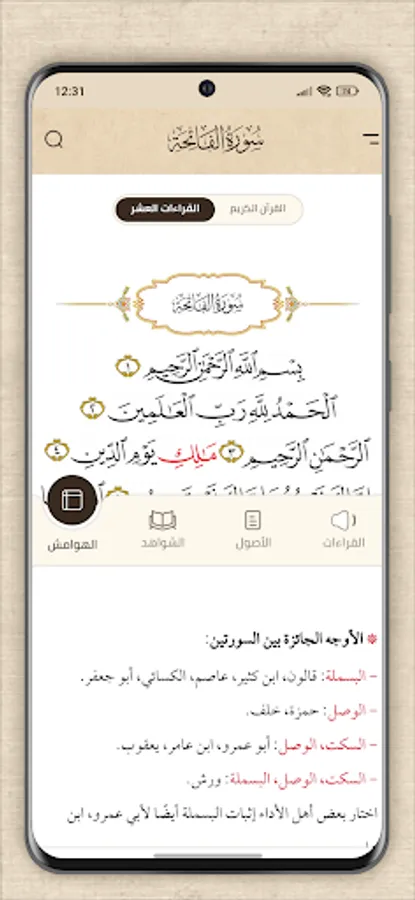 12:31
سُورَةُ الفَاتِحَةِ
القرآن الكريم
القراءات العشر
سُورَةُ الفَاتِحَةِ
بِسْمِ ٱللَّهِ ٱلرَّحْمَٰنِ ٱلرَّحِيمِ ١
ٱلْحَمْدُ لِلَّهِ رَبِّ ٱلْعَٰلَمِينَ ٢
ٱلرَّحْمَٰنِ ٱلرَّحِيمِ ٣ مَٰلِكِ يَوْمِ ٱلدِّينِ ٤
القراءات
الأصول
الشواهد
الهوامش
* الأوجه الجائزة بين السورتين:
– البسملة: قالون، ابن كثير، عاصم، الكسائي، أبو جعفر.
– الوصل: حمزة، خلف.
– السكت، الوصل: أبو عمرو، ابن عامر، يعقوب.
– السكت، الوصل، البسملة: ورش.
اختار بعض أهل الأداء إثبات البسملة أيضًا لأبي عمرو، ابن